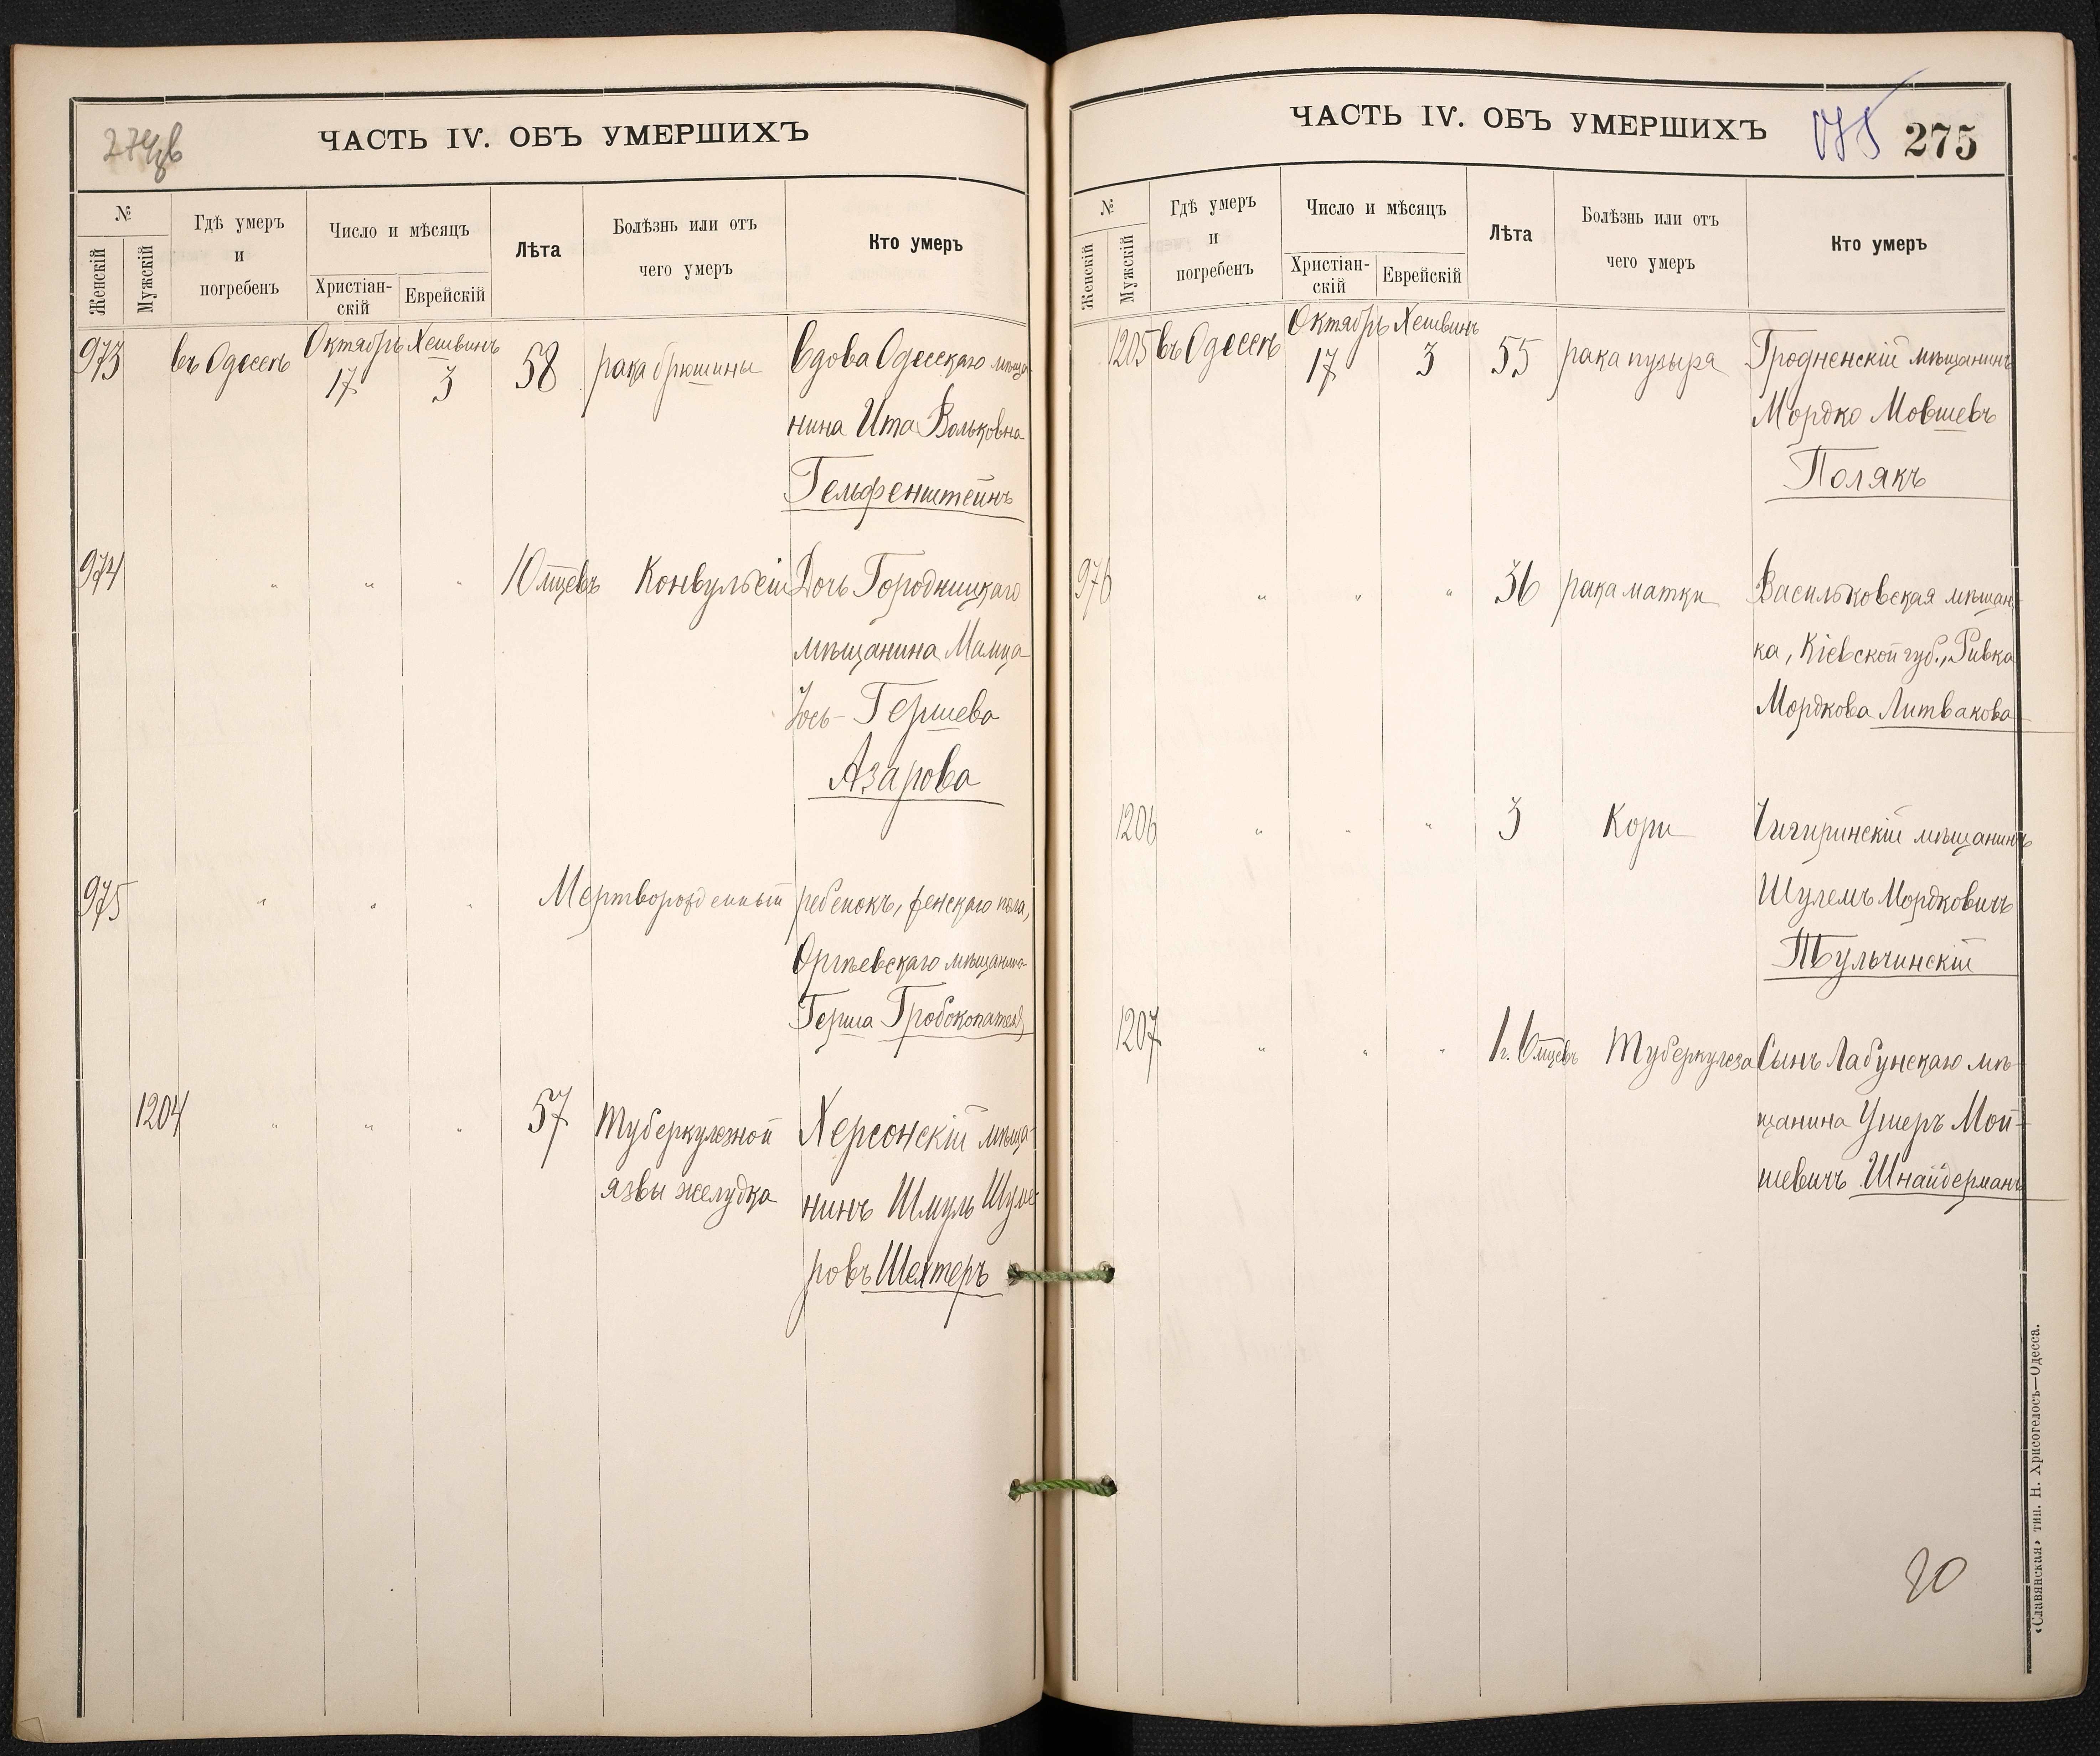 274об
ЧАСТЬ IV. ОБЪ УМЕРШИХЪ
№
Женскій
Мужскій
Гдѣ умеръ
и
погребенъ
Число и мѣсяцъ
Христіан-
скій
Еврейскій
Лѣта
Болѣзнь или отъ
чего умеръ
Кто умеръ
973 въ Одессѣ Октябрь 17 Хешвинъ 3 58 рака брюшины Вдова Одесскаго мѣща-
нина Ита Вольковна
Гельфенштейнъ
974 " " " 10 мцевъ Конвульсіи Дочь Городницкаго
мѣщанина Малца
Іось-Гершева
Азарова
975 " " " Мертворожденный ребенокъ, женскаго пола,
Оргѣевскаго мѣщанина
Герша Гробокопатель
1204 " " " 57 Туберкулезной Херсонскій мѣща-
язвы желудка нинъ Шмуль
ровъ Шехтеръ
ЧАСТЬ IV. ОБЪ УМЕРШИХЪ
275
275
№
Женскій
Мужскій
Гдѣ умеръ
и
погребенъ
Число и мѣсяцъ
Христіан-
скій
Еврейскій
Лѣта
Болѣзнь или отъ
чего умеръ
Кто умеръ
1205 въ Одессѣ Октябрь 17 Хешвинъ 3 55 рака пузыря Гродненскій мѣщанинъ
Мордко Мовшевъ
Полякъ
976 " " " 36 рака матки Васильковская мѣщан-
ка, Кіевской губ., Ривка
Мордкова Литвакова
1206 " " " 3 Кори Чигиринскій мѣщанинъ
Шулемъ Мордковичъ
Тульчинскій
1207 " " " 1 г. 6 мцевъ Туберкулеза Сынъ Лабунскаго мѣ-
щанина Ушеръ Мой-
шевичъ Шнайдерманъ
20
«Славянская» тип. Н. Хрисогелосъ—Одесса.